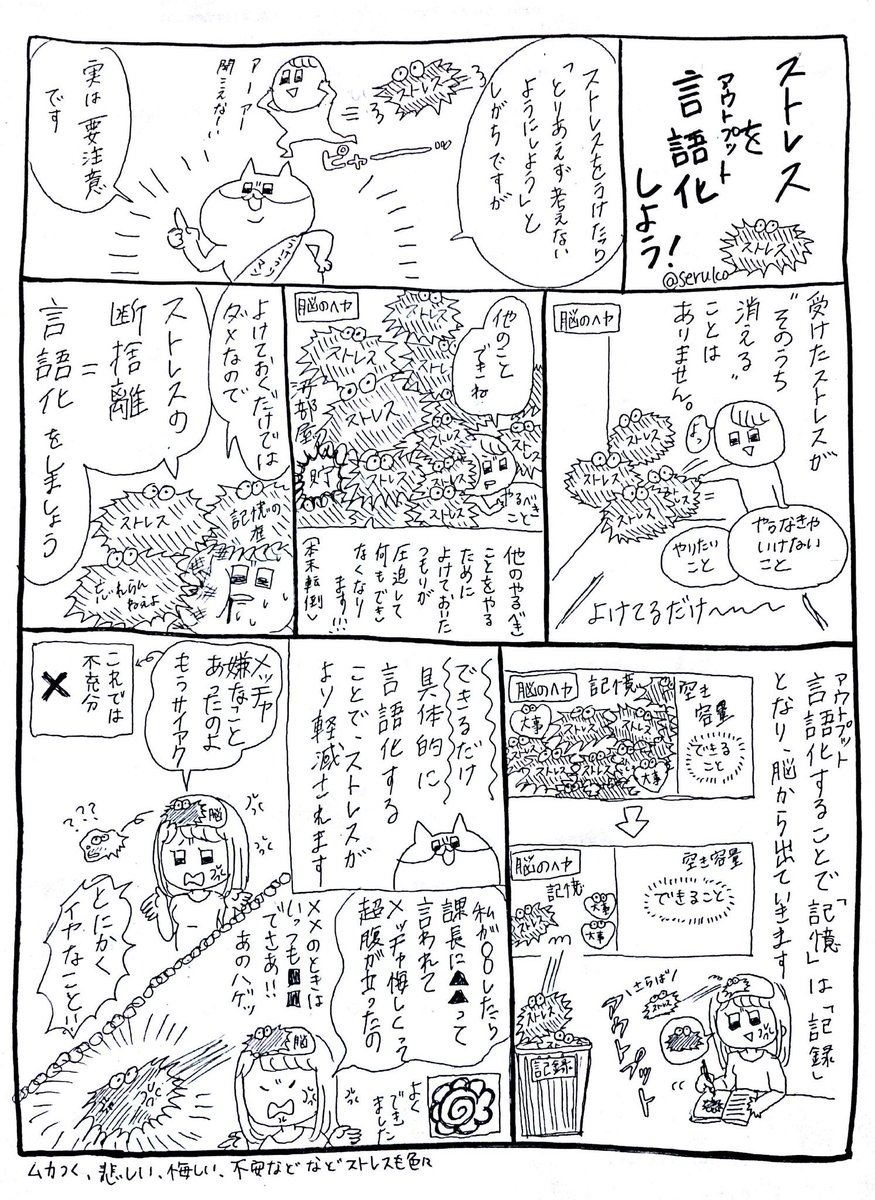 ストレス
を
アウトプット
言語化
しよう!
ストレス
@seruko
ストレスをうけたら
「とりあえず考えない
ようにしよう」と
しがちですが
ストレス
アーアー
聞こえな〜い
ピャー
実は要注意
です
受けたストレスが
"そのうち
消える"
ことは
ありません。
脳のヘヤ
よっ
ストレス
ストレス
ストレス
ストレス
ストレス
やるなきゃ
いけない
こと
やりたい
こと
よけてるだけ〜〜〜
脳のヘヤ
他のこと
できね
ストレス
ストレス
ストレス
ストレス
ストレス
ストレス
ストレス
ストレス
汚部屋
貯
やるべき
こと
他のやるべき
ことをやる
ために
よけておいた
つもりが
圧迫して
何もでき
なくなり
ます!!!
(本末転倒)
よけておくだけでは
ダメなので
ストレスの
断捨離
=
言語化をしましょう
ストレス
記憶の
座
だいれらん
ねえよ
アウトプット
言語化することで「記憶」は「記録」
となり、脳から出ていきます
脳のヘヤ
記憶
空き
容量
大事
ストレス
ストレス
ストレス
ストレス
大事
できる
こと
脳のヘヤ
記憶
空き容量
ストレス
大事
大事
できること
さらば!
ストレス
アウトプット
ストレス
ストレス
記録
できるだけ
具体的に
言語化する
ことで、ストレスが
より軽減されます
メッチャ
嫌なこと
あったのよ
もうサイアク
これでは
不充分
×
脳
???
とにかく
イヤなこと!!
私が〇〇したら
課長に▲▲って
言われて
メッチャ悔しくって
超腹が立ったの
××のときは
いっつも■■
でさあ!!
あのハゲッ
脳
よく
できました
ムカつく、悲しい、悔しい、不安などなどストレスも色々